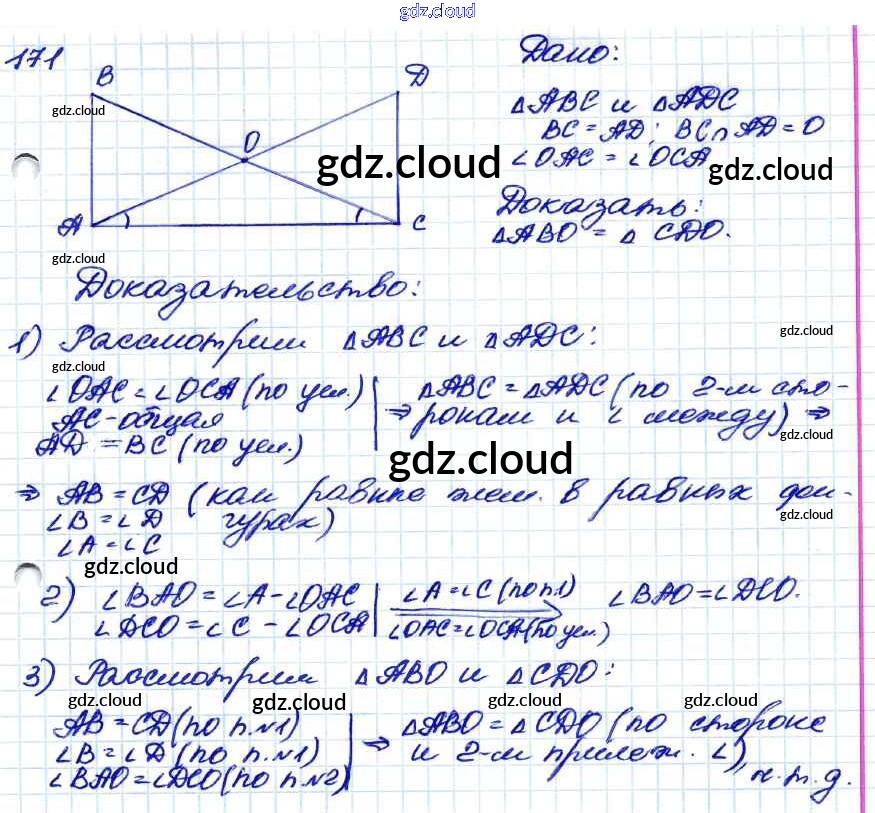 gdz.cloud
171
B
D
O
A
C
gdz.cloud
gdz.cloud
Дано:
△ABC и △ADC
BC = AD; BC ∩ AD = O
∠OAC = ∠OCA
gdz.cloud
Доказать:
△ABO = △ CDO.
gdz.cloud
Доказательство:
1) Рассмотрим △ABC и △ADC:
gdz.cloud
gdz.cloud
∠OAC = ∠OCA (по усл.)
AC - общая
AD = BC (по усл.)
⇒ △ABC = △ADC (по 2-м сто-
ронам и ∠ между) ⇒
gdz.cloud
gdz.cloud
⇒ AB = CD (как равные элем. в равных фи-
∠B = ∠D гурах)
∠A = ∠C
gdz.cloud
gdz.cloud
2) ∠BAO = ∠A - ∠OAC
∠DCO = ∠C - ∠OCA
∠A = ∠C (по п.1)
∠OAC = ∠OCA (по усл.)
∠BAO = ∠DCO.
3) Рассмотрим △ABO и △CDO:
gdz.cloud
gdz.cloud
gdz.cloud
gdz.cloud
AB = CD (по п.№1)
∠B = ∠D (по п.№1)
∠BAO = ∠DCO (по п.№2)
⇒ △ABO = △CDO (по стороне
и 2-м прилеж. ∠),
ч.т.д.